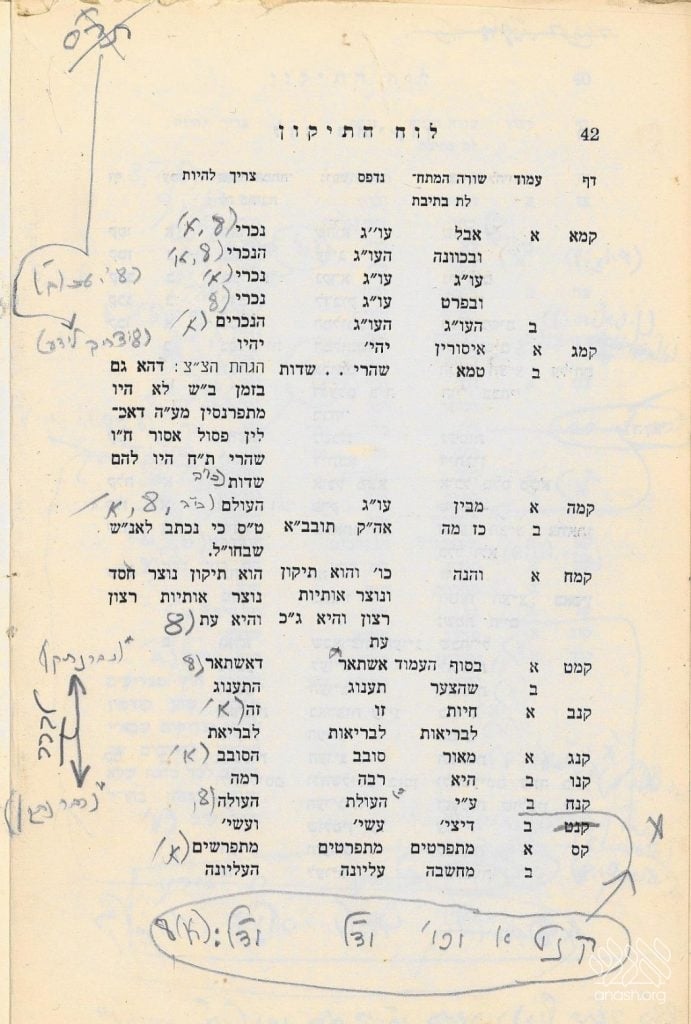 42 לוח התיקון
דף עמוד שורה המתח־ נדפס צריך להיות
לת בתיבת
קמא א אבל עו״ג נכרי
ובכוונה העו״ג הנכרי
עו״ג עו״ג נכרי
ובפרט עו״ג נכרי
ב העו״ג העו״ג הנכרים
קמג א איסורין יהי׳ יהיו
ב טמא שהרי . . שדות הגהת הצ״צ: דהא גם
בזמן ב״ש לא היו
מתפרנסין מע״ה דאכ־
לין פסול אסור ח״ו
שהרי ת״ח היו להם
שדות
קמה א מבין עו״ג העולם
ב כז מה אה״ק תובב״א ט״ס כי נכתב לאנ״ש
שבחו״ל.
קמח א והנה כו׳ והוא תיקון הוא תיקון נוצר חסד
ונוצר אותיות נוצר אותיות רצון
רצון והיא ג״כ והיא עת
עת
קמט א בסוף העמוד אשתאר דאשתאר
ב שהצער תענוג התענוג
קנב א חיות זו זה
לבריאות לבריאות לבריאת
קנג א מאור סובב הסובב
קנו ב היא רבה רמה
קנח ב ע״י העולת העולה
קנט ב דיצי׳ עשי׳ ועשי׳
קס א מתפרטים מתפרטים מתפרשים
ב מחשבה עליונה העליונה
קנט א וכו׳
anash.org